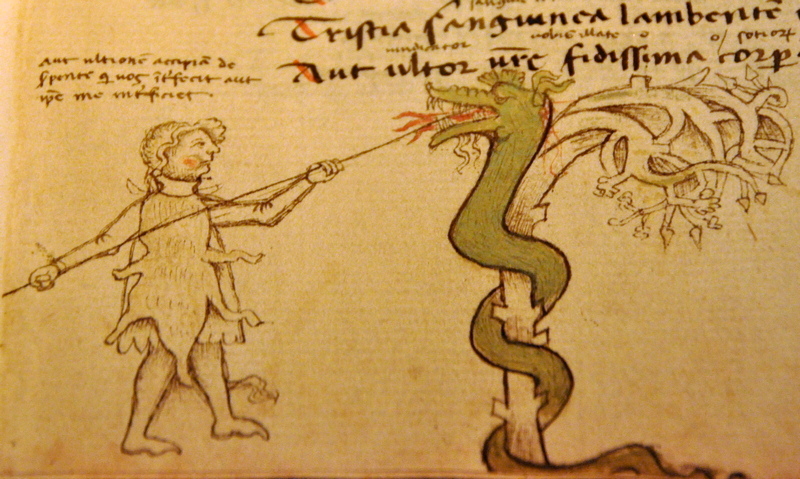 Tristia sanguinea lambentē
vindicator nobis illate o o
Aut ultor vr̄e fidissima corp
aut ultionē accipiā de
s̱pente q̄ vos īt'fecit aut
ip̄e me int'ficiet